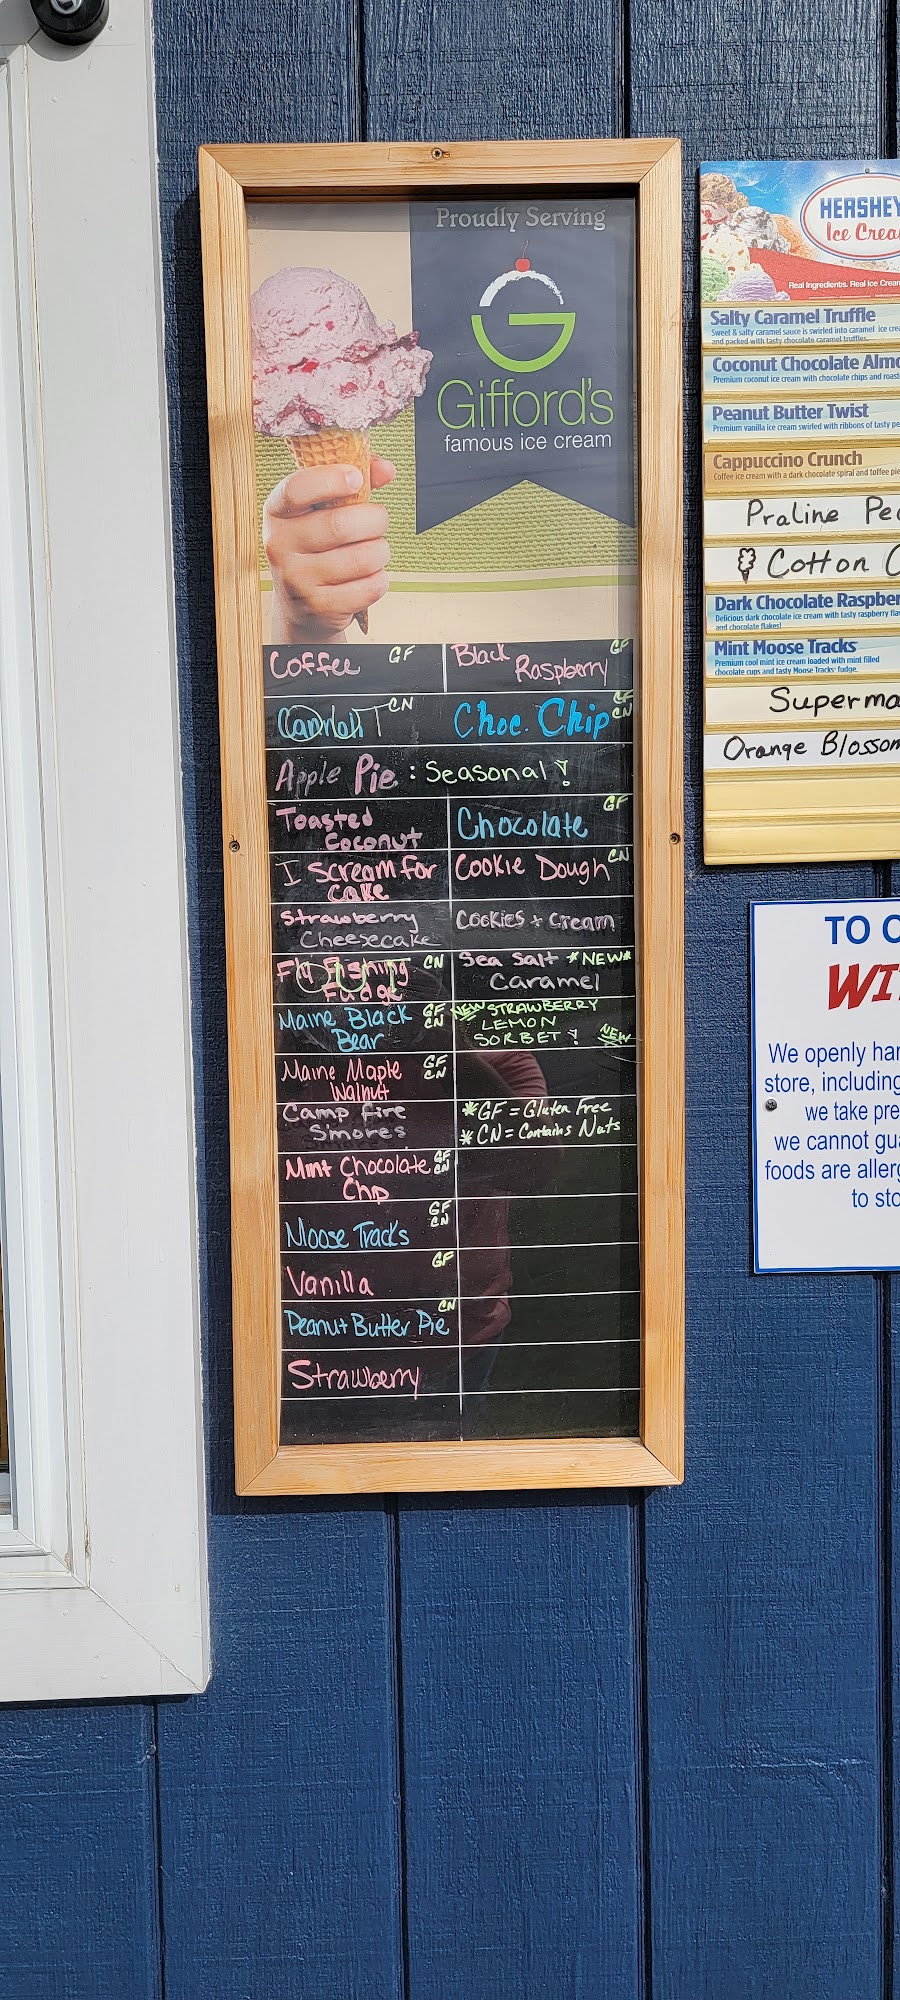 Proudly Serving
G
Gifford's
famous ice cream
Coffee GF
Black GF
Raspberry
CN
Choc. Chip GF CN
Apple Pie : Seasonal!
Toasted
Coconut
Chocolate GF
I Scream for
cake
Cookie Dough CN
Strawberry
Cheesecake
Cookies + Cream
Fly Fishing CN
Fudge
OUT
Sea Salt *NEW*
Caramel
Maine Black GF CN
Bear
NEW STRAWBERRY
LEMON
SORBET! NEW
Maine Maple GF CN
Walnut
Camp fire
S'mores
*GF = Gluten Free
*CN = Contains Nuts
Mint Chocolate GF CN
Chip
Moose Tracks GF CN
Vanilla GF
Peanut Butter Pie CN
Strawberry
HERSHEY
Ice Crea
Real Ingredients. Real Ice Cream
Salty Caramel Truffle
Sweet & salty caramel sauce is swirled into caramel ice cre
and packed with tasty chocolate caramel truffles.
Coconut Chocolate Almo
Premium coconut ice cream with chocolate chips and roast
Peanut Butter Twist
Premium vanilla ice cream swirled with ribbons of tasty pe
Cappuccino Crunch
Coffee ice cream with a dark chocolate spiral and toffee pie
Praline Pe
Cotton C
Dark Chocolate Raspber
Delicious dark chocolate ice cream with tasty raspberry fla
and chocolate flakes!
Mint Moose Tracks
Premium cool mint ice cream loaded with mint filled
chocolate cups and tasty Moose Tracks fudge.
Superma
Orange Blossom
TO
WI
We openly han
store, including
we take pre
we cannot gua
foods are allerg
to sto